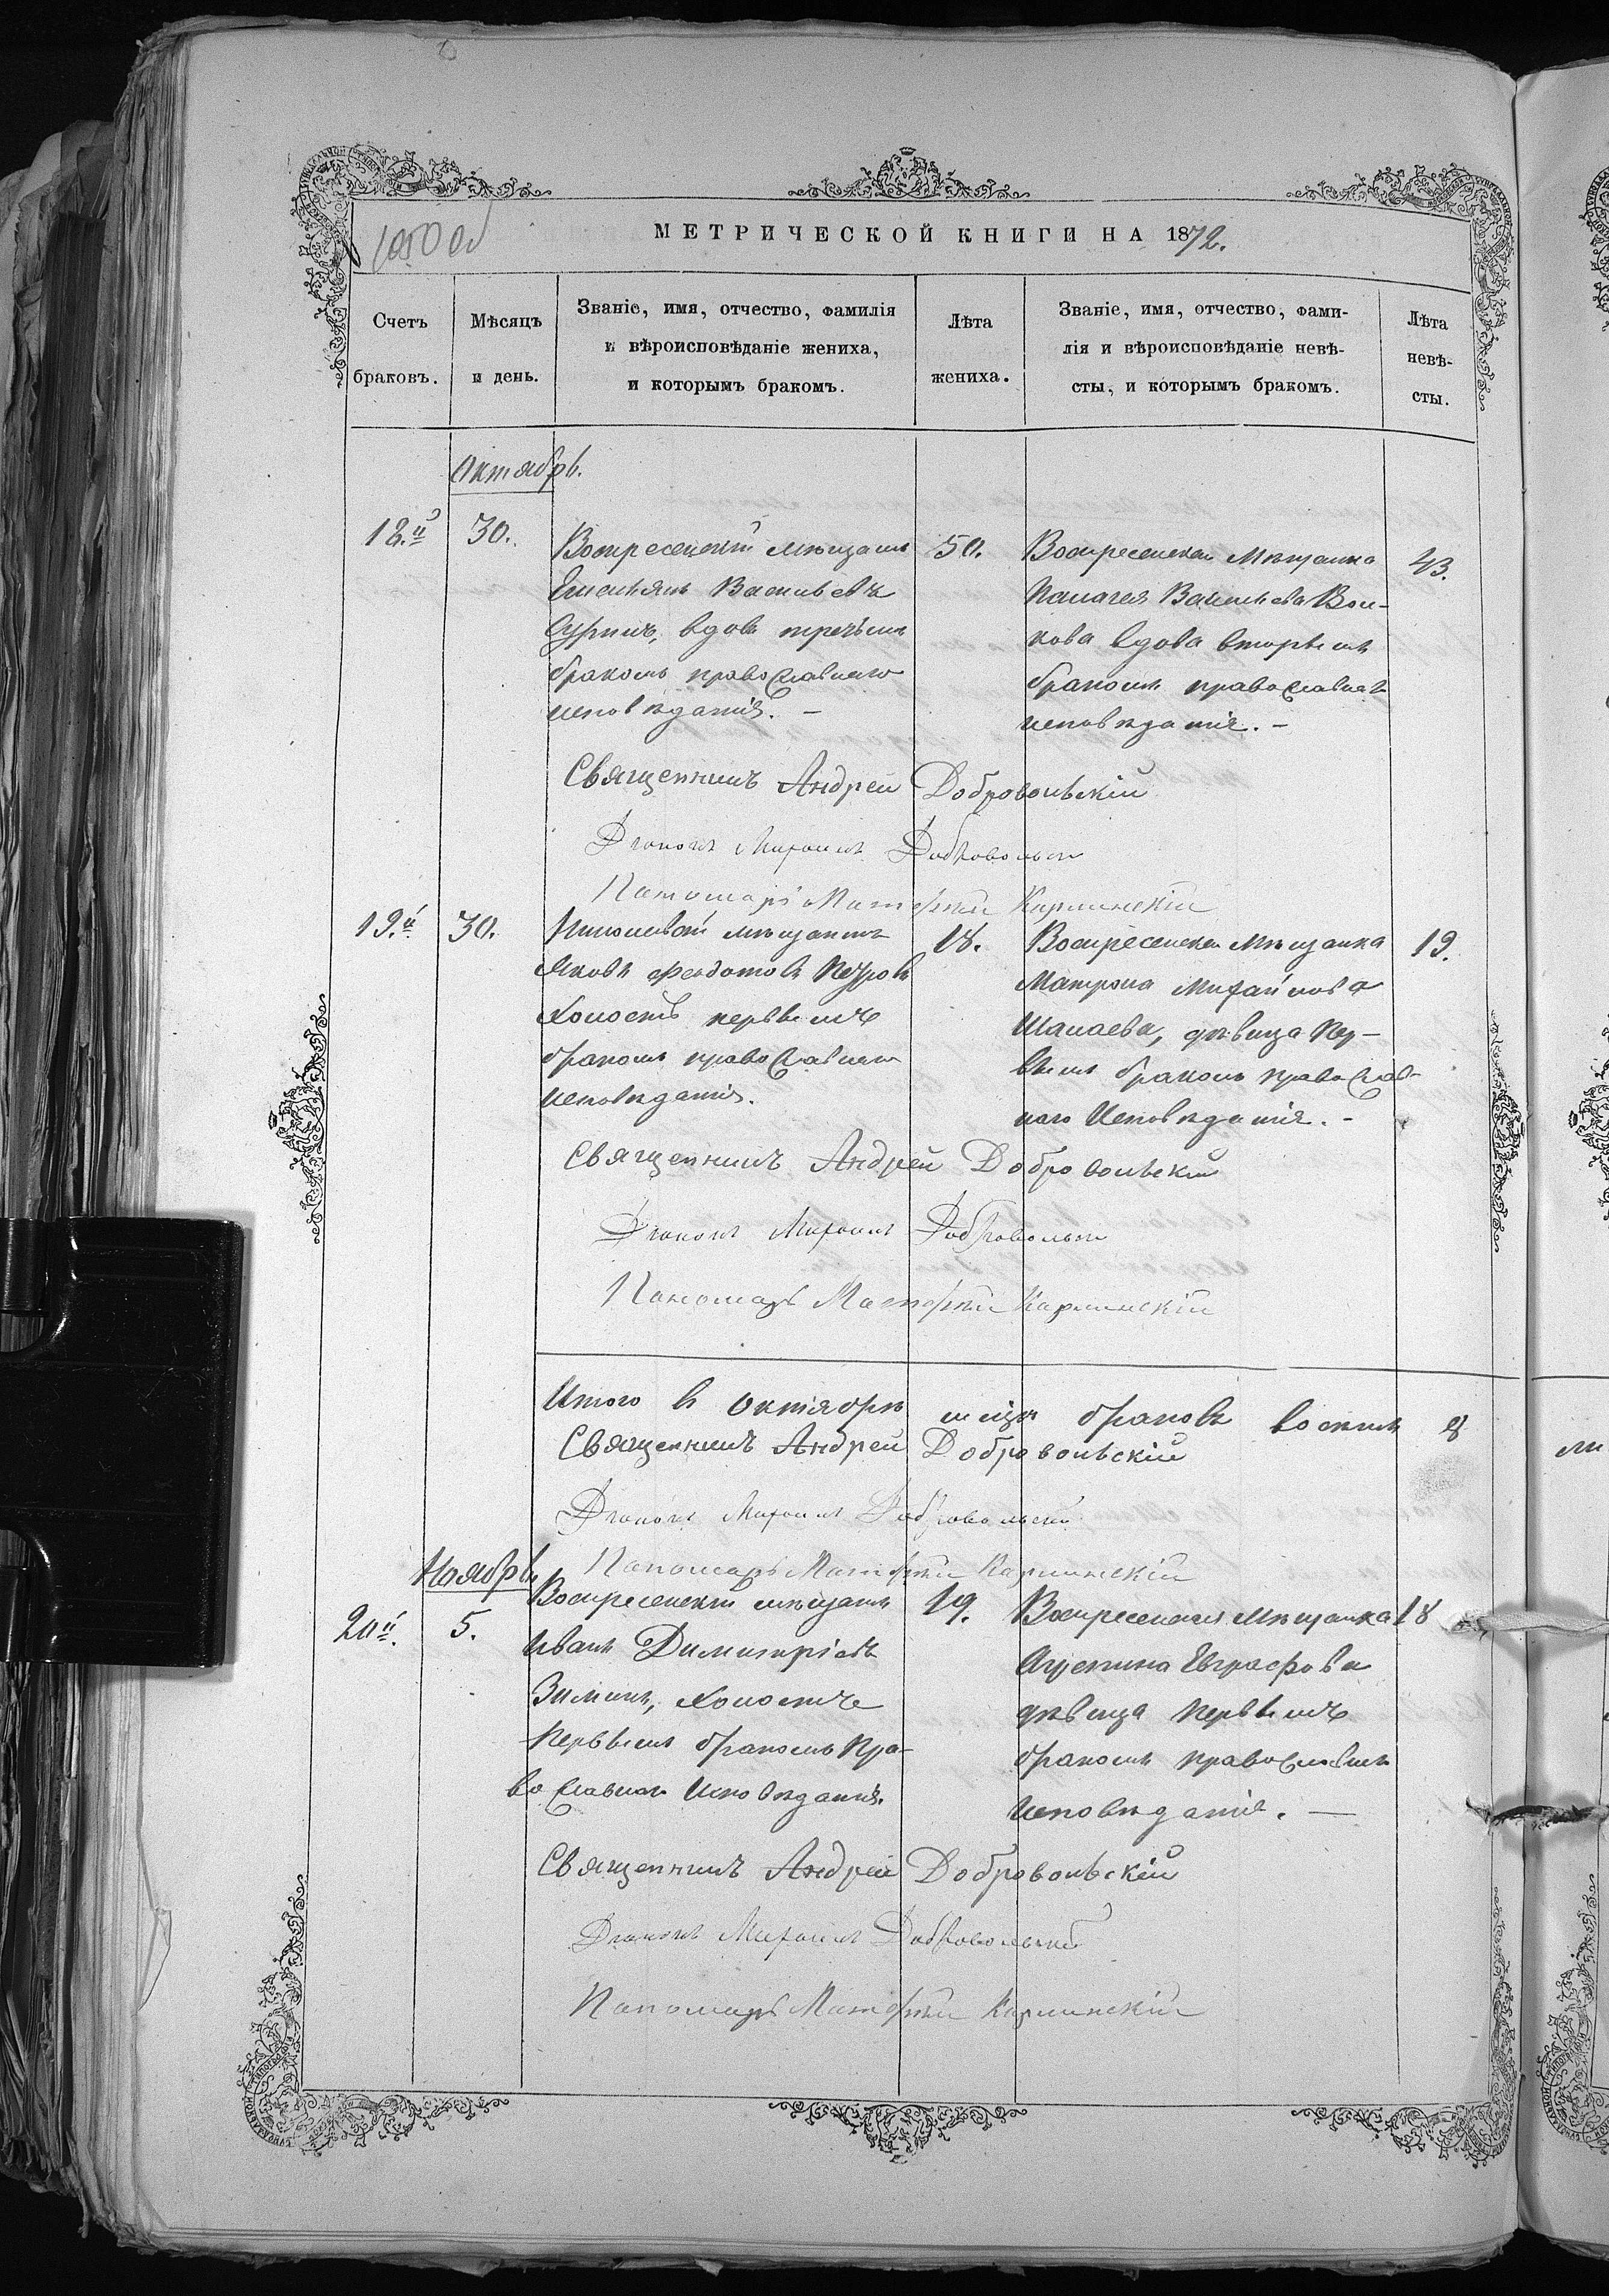 МЕТРИЧЕСКОЙ КНИГИ НА 1872.
Счетъ браковъ.
Мѣсяцъ и день.
Званіе, имя, отчество, фамилія
и вѣроисповѣданіе жениха,
и которымъ бракомъ.
Лѣта жениха.
Званіе, имя, отчество, фами-
лія и вѣроисповѣданіе невѣ-
сты, и которымъ бракомъ.
Лѣта
невѣ-
сты.
Октябрь.
18.й
30.
Воскресенскій мѣщанинъ
Емельянъ Васильевъ
вдовъ третьимъ
бракомъ православнаго
исповѣданія. —
50.
Воскресенская Мѣщанка
Палагея Васильева Вол-
кова вдова вторымъ
бракомъ православнаго
исповѣданія. —
43.
Священникъ Андрей Добровольскій
Діаконъ Михаилъ Добровольскій
Пономарь Матфій Карлинскій
19.й
30.
мѣщанинъ
Яковъ Федотовъ Петровъ
Холостъ первымъ
бракомъ православнаго
исповѣданія.
18.
Воскресенская Мѣщанка
Матрона Михайлова
Шалаева, дѣвица Пер-
вымъ бракомъ православ-
наго Исповѣданія. —
19.
Священникъ Андрей Добровольскій
Діаконъ Михаилъ Добровольскій
Пономарь Матфій Карлинскій
Итого въ Октябрѣ мѣцѣ браковъ восемь 8
Священникъ Андрей Добровольскій
Діаконъ Михаилъ Добровольскій
Пономарь Матфій Карлинскій
Ноябрь
20й.
5.
Воскресенскій мѣщанинъ
Иванъ Димитріевъ
Зиминъ, Холостъ
Первымъ бракомъ Пра-
вославнаго Исповѣданія.
19.
Воскресенская Мѣщанка
Агрепина Евграфова
дѣвица Первымъ
бракомъ православнаго
исповѣданія. —
18
Священникъ Андрей Добровольскій
Діаконъ Михаилъ Добровольскій
Пономарь Матфій Карлинскій